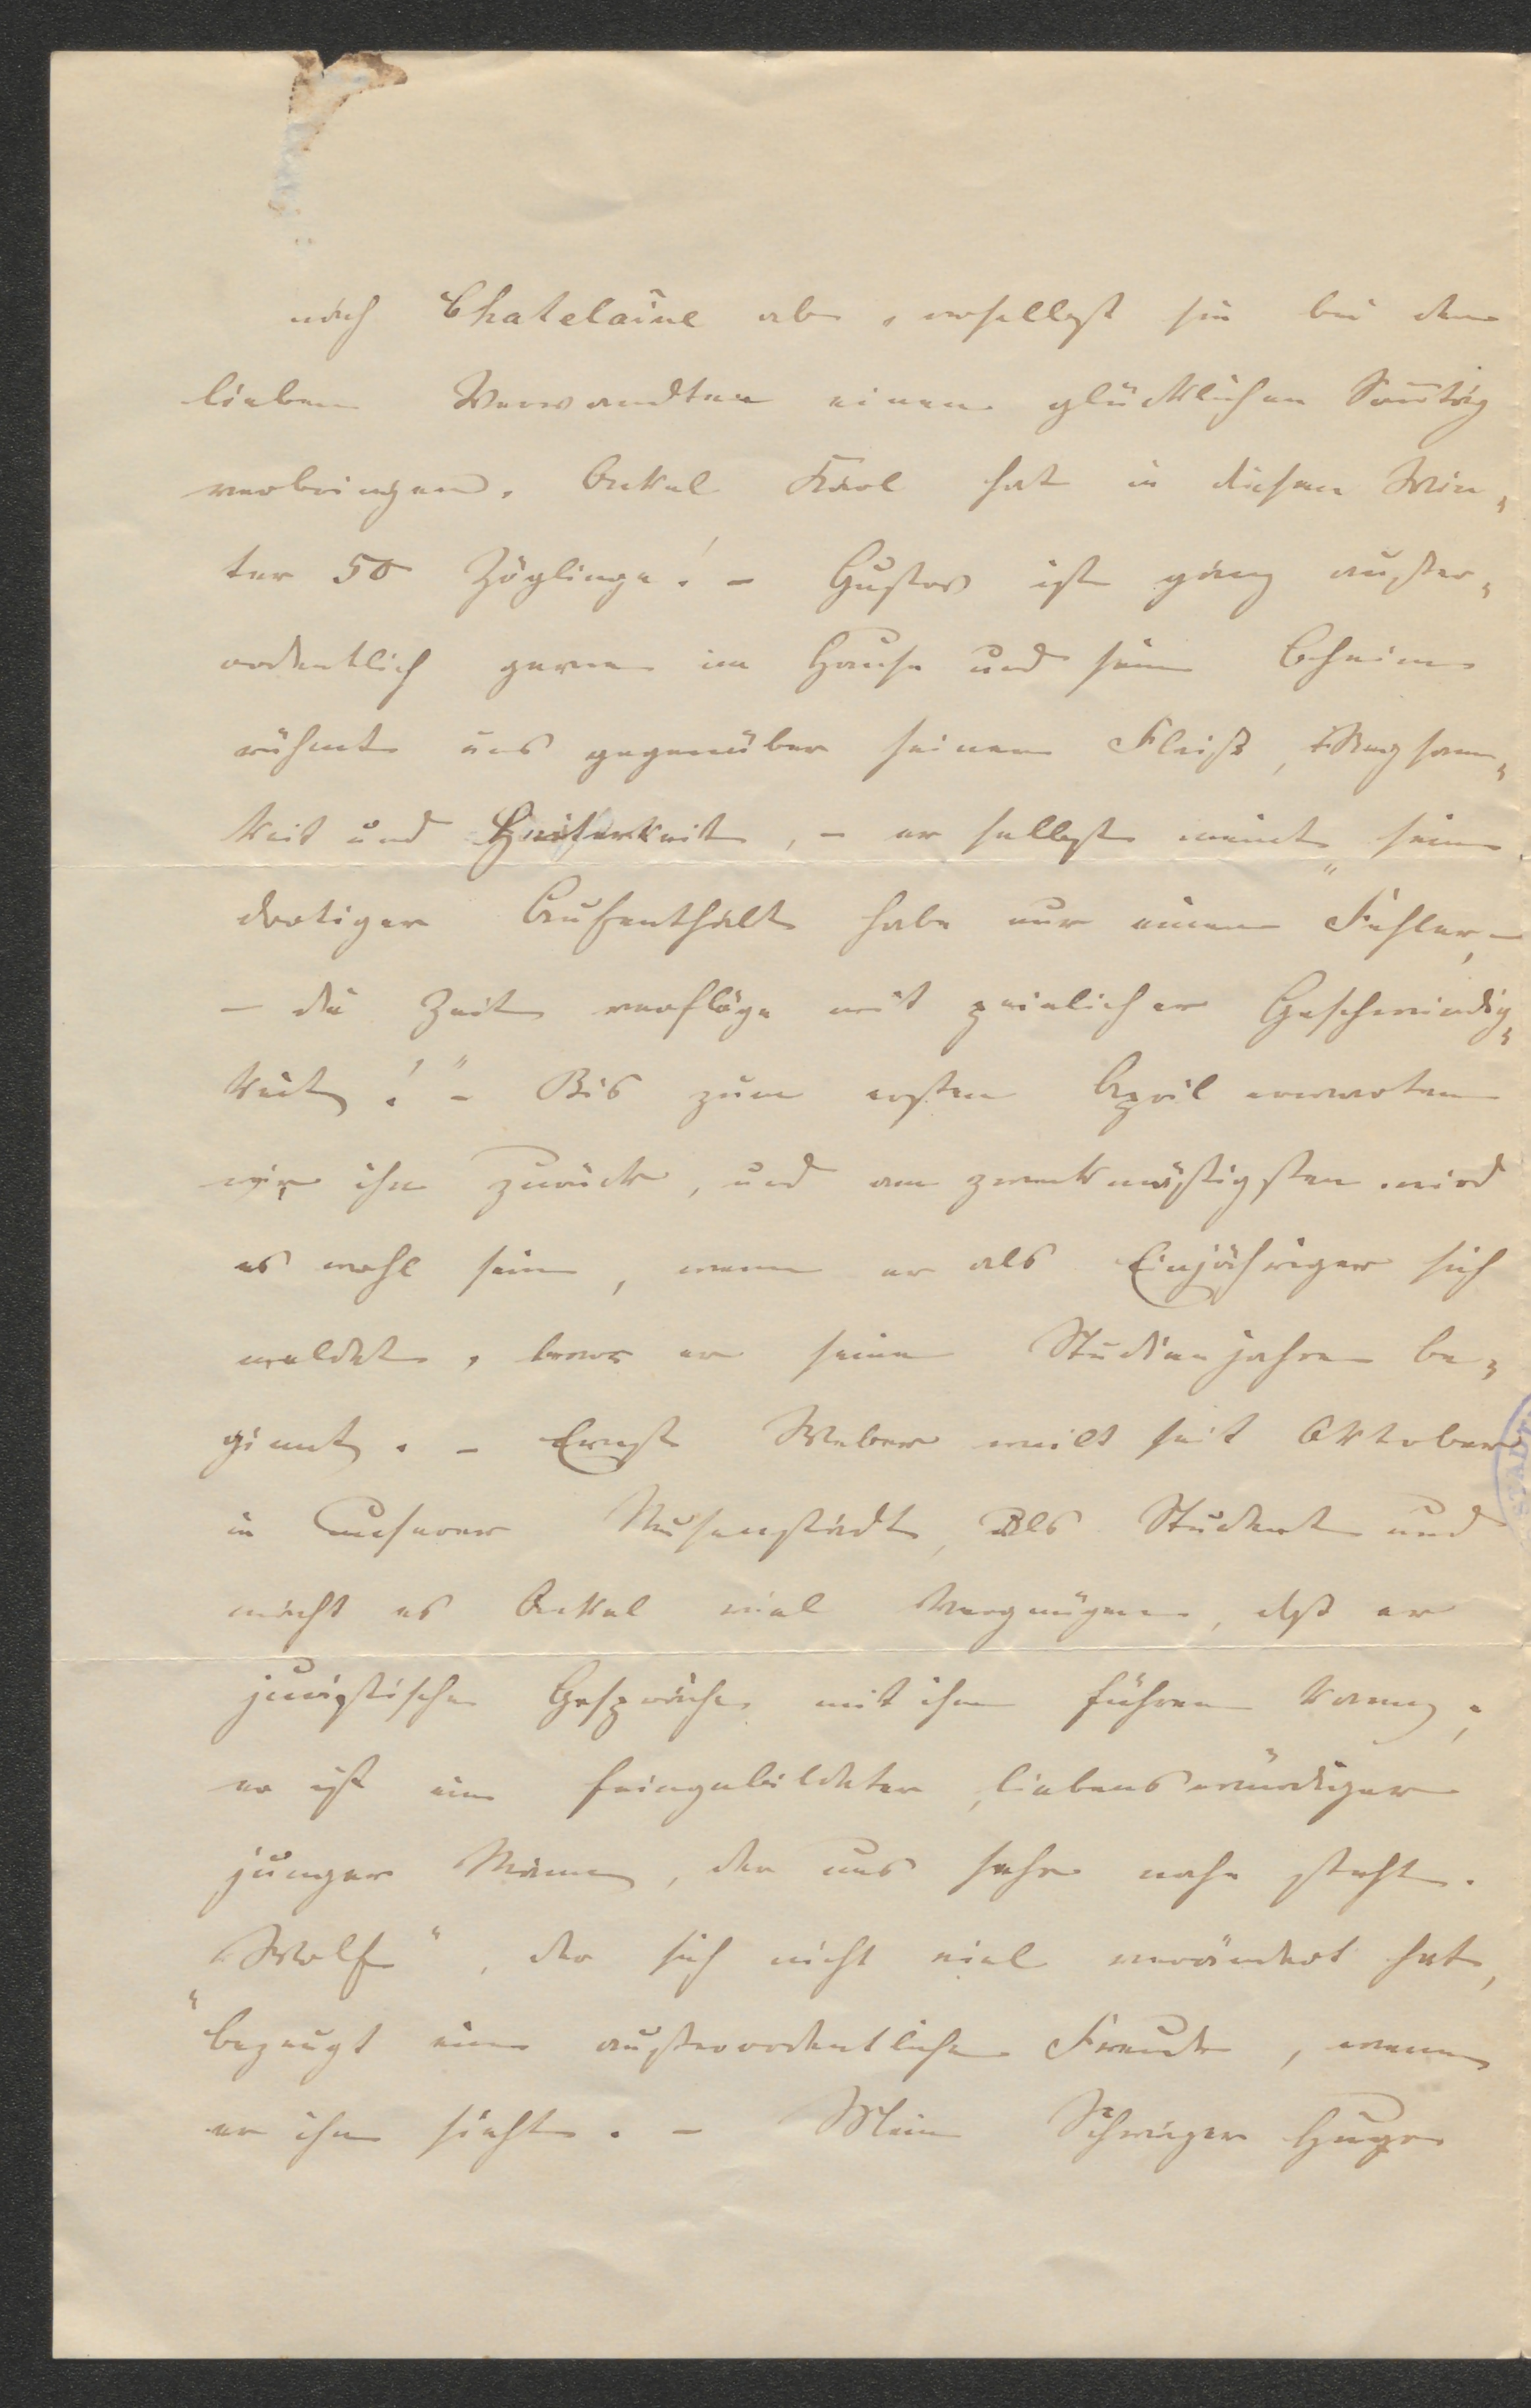 nach Chatelaine ab, woselbst sie bei den
lieben Verwandten einen glücklichen Sonntag
verbringen. Onkel Karl hat in diesem Win-
ter 50 Zöglinge! – Gustav ist ganz außer-
ordentlich gerne im Hause und sein Oheim
rühmt uns gegenüber seinen Fleiß,
keit und Heiterkeit, – er selbst meint „sein
dortiger Aufenthalt habe nur einen Fehler, –
– die Zeit verflöge mit peinlicher Geschwindig-
keit!" – Bis zum ersten April erwarten
wir ihn zurück, und am zweckmäßigsten wird
es wohl sein, wenn er als Einjähriger sich
meldet, bevor er seine Studienjahre be-
ginnt. – Ernst Weber weilt seit Oktober
in unserer Musenstadt, als Student und
macht es Onkel viel Vergnügen, daß er
juristische Gespräche mit ihm führen kann;
er ist ein feingebildeter, liebenswürdiger
junger Mann, der uns sehr nahe steht.
„Wolf", der sich nicht viel verändert hat,
bezeugt eine außerordentliche Freude, wenn
er ihn sieht. – Mein Schwager Hugo